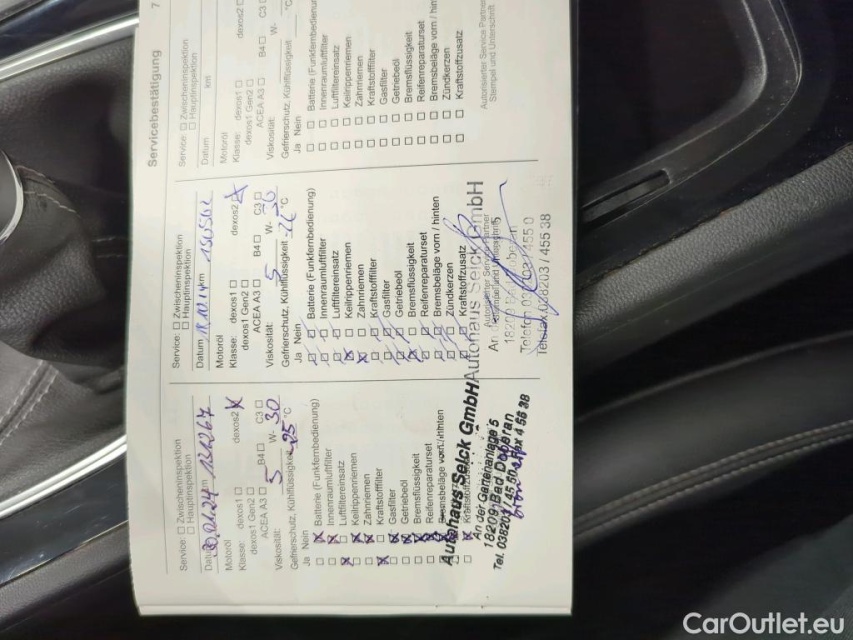 Servicebestätigung 7
Service: ☐ Zwischeninspektion
☐ Hauptinspektion
Datum km
Motoröl
Klasse: dexos1 ☐ dexos2 ☐
dexos1 Gen2 ☐
ACEA A3 ☐ B4 ☐ C3 ☐
Viskosität: W-
Gefrierschutz, Kühlflüssigkeit °C
Ja Nein
☐ ☐ Batterie (Funkfernbedienung)
☐ ☐ Innenraumluftfilter
☐ ☐ Luftfiltereinsatz
☐ ☐ Keilrippenriemen
☐ ☐ Zahnriemen
☐ ☐ Kraftstofffilter
☐ ☐ Gasfilter
☐ ☐ Getriebeöl
☐ ☐ Bremsflüssigkeit
☐ ☐ Reifenreparaturset
☐ ☐ Bremsbeläge vorn / hinten
☐ ☐ Zündkerzen
☐ ☐ Kraftstoffzusatz
Autorisierter Service Partner
Stempel und Unterschrift
Service: ☐ Zwischeninspektion
☐ Hauptinspektion
Datum km
Motoröl
Klasse: dexos1 ☐ dexos2 ☒
dexos1 Gen2 ☐
ACEA A3 ☐ B4 ☐ C3 ☐
Viskosität: 5 W- 30
Gefrierschutz, Kühlflüssigkeit °C
Ja Nein
Batterie (Funkfernbedienung)
Innenraumluftfilter
Luftfiltereinsatz
Keilrippenriemen
Zahnriemen
Kraftstofffilter
Gasfilter
Getriebeöl
Bremsflüssigkeit
Reifenreparaturset
Bremsbeläge vorn / hinten
Zündkerzen
Kraftstoffzusatz
Autohaus Selck GmbH
18209 Bad Doberan
Telefax 038203 / 455 38
Service: ☐ Zwischeninspektion
☐ Hauptinspektion
Datum 131267
Motoröl
Klasse: dexos1 ☐ dexos2 ☒
dexos1 Gen2 ☐
ACEA A3 ☐ B4 ☐ C3 ☐
Viskosität: 5 W- 30
Gefrierschutz, Kühlflüssigkeit -25 °C
Ja Nein
Batterie (Funkfernbedienung)
Innenraumluftfilter
Luftfiltereinsatz
Keilrippenriemen
Zahnriemen
Kraftstofffilter
Gasfilter
Getriebeöl
Bremsflüssigkeit
Reifenreparaturset
Bremsbeläge vorn / hinten
Kraftstoffzusatz
Autohaus Selck GmbH
An der Gartenanlage 5
18209 Bad Doberan
CarOutlet.eu